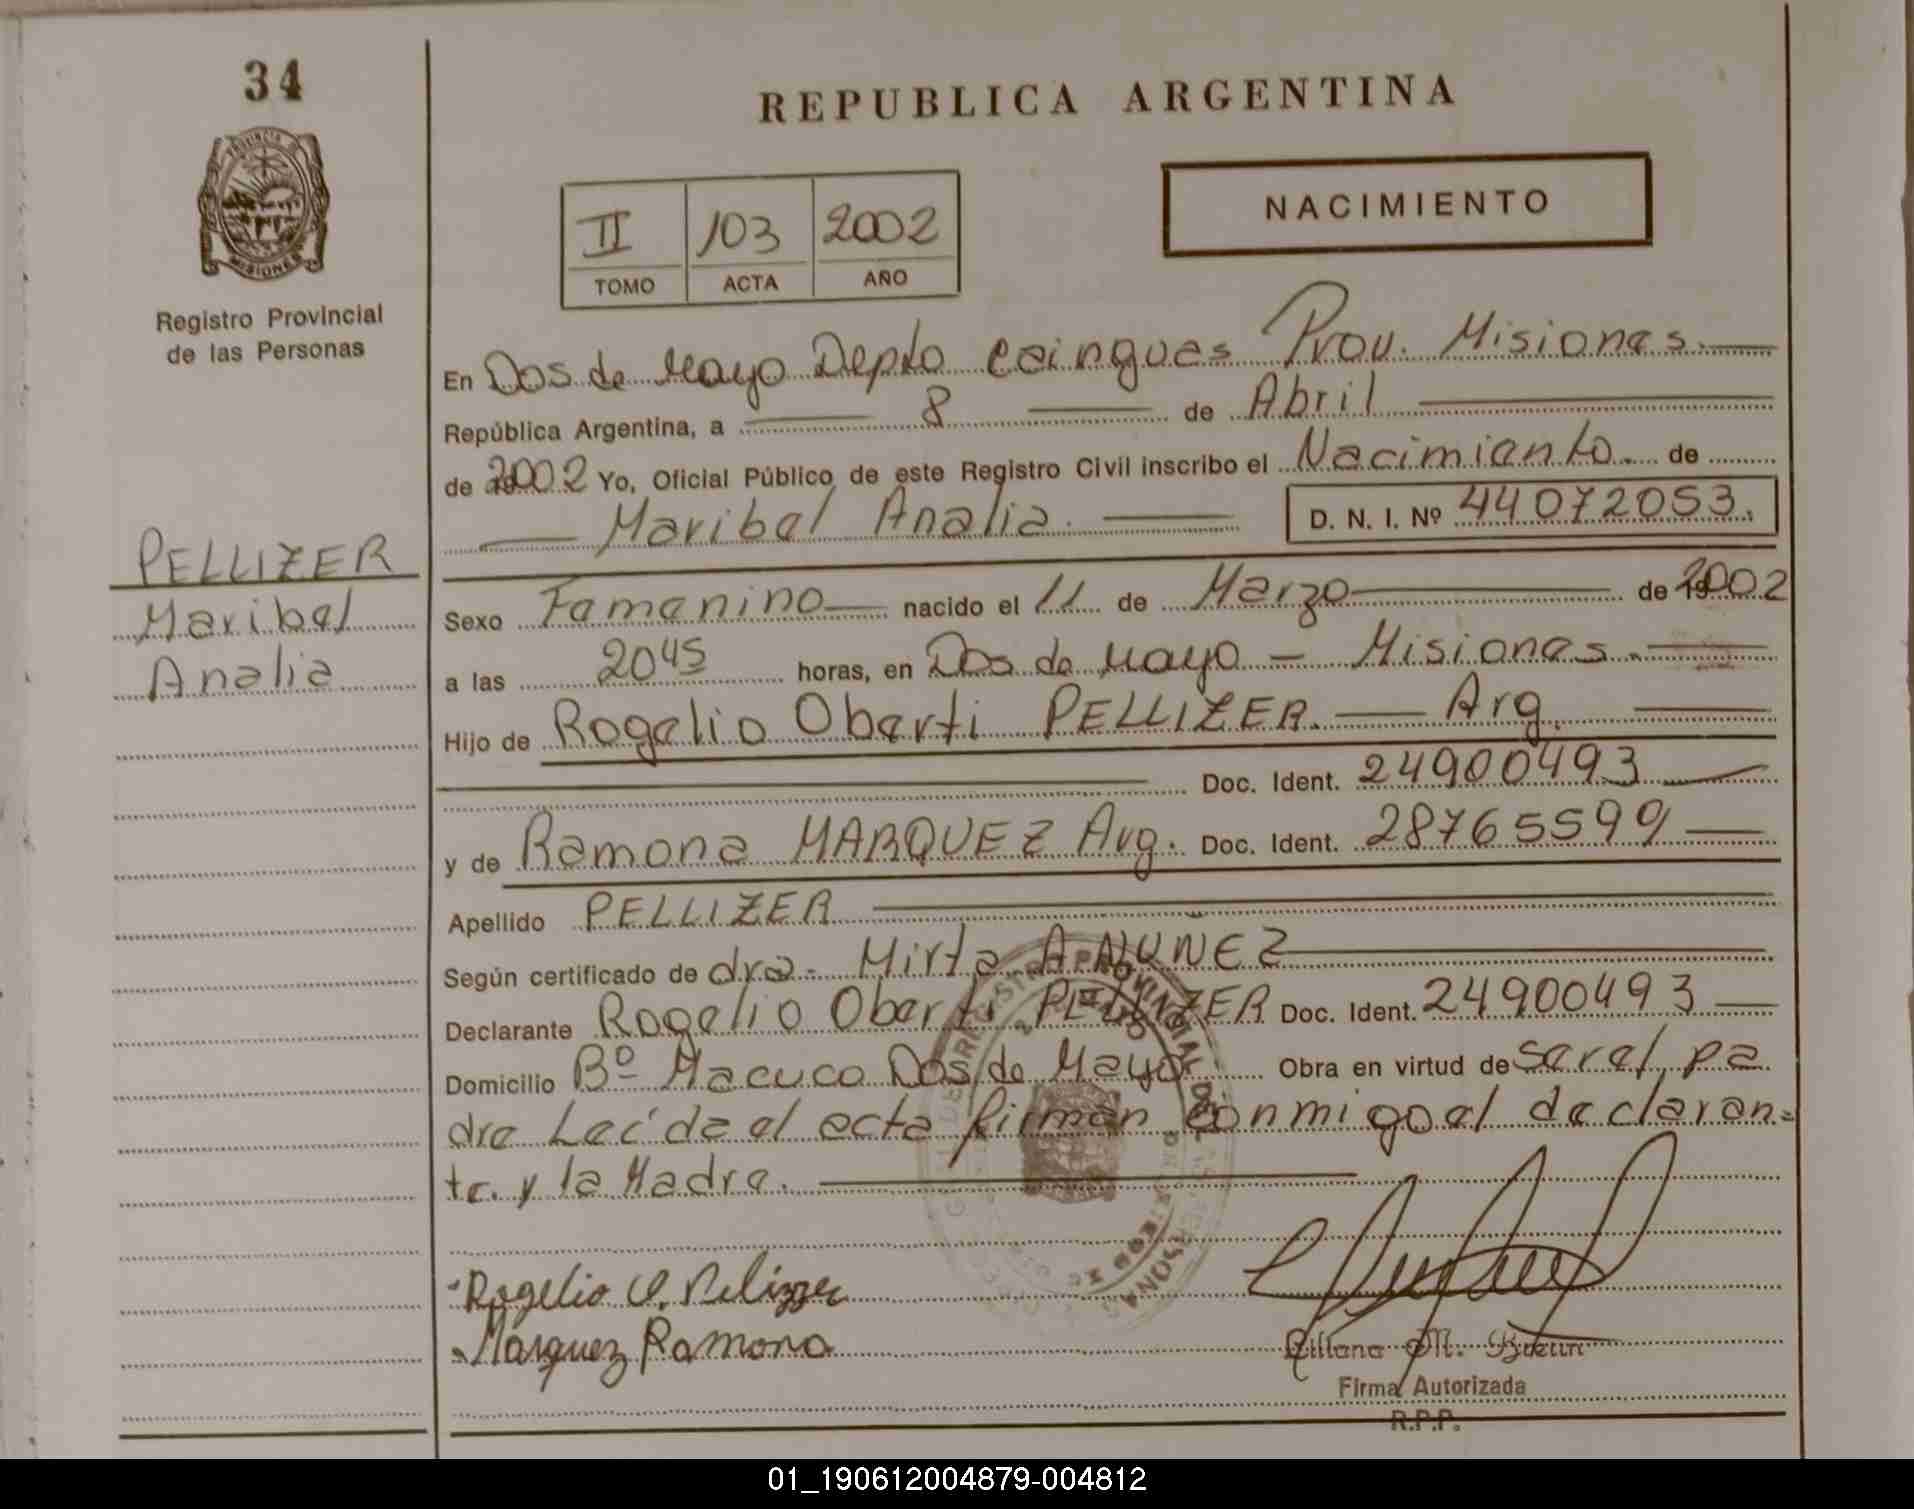 34
PROVINCIA DE
MISIONES
Registro Provincial
de las Personas
PELLIZER
Maribel
Analia
REPUBLICA ARGENTINA
II 103 2002
TOMO ACTA AÑO
NACIMIENTO
En Dos de Mayo Depto Caingues Prov. Misiones.
República Argentina, a 8 de Abril
de 2002 Yo, Oficial Público de este Registro Civil inscribo el Nacimiento. de
Maribel Analia. D. N. I. Nº 44072053.
Sexo Femenino nacido el 11 de Marzo de 2002
a las 2045 horas, en Dos de Mayo - Misiones.
Hijo de Rogelio Oberti PELLIZER. Arg.
Doc. Ident. 24900493
y de Ramona MARQUEZ Arg. Doc. Ident. 28765599
Apellido PELLIZER
Según certificado de dra. Mirta A NUÑEZ
Declarante Rogelio Oberti PELLIZER Doc. Ident. 24900493
Domicilio Bº Macuco Dos de Mayo Obra en virtud de ser el pa
dre Leída el acta firman conmigo el declaran=
te. y la Madre.
Rogelio O. Pelizzer
Marquez Ramona
M.
Firma Autorizada
R.P.P.
01_190612004879-004812